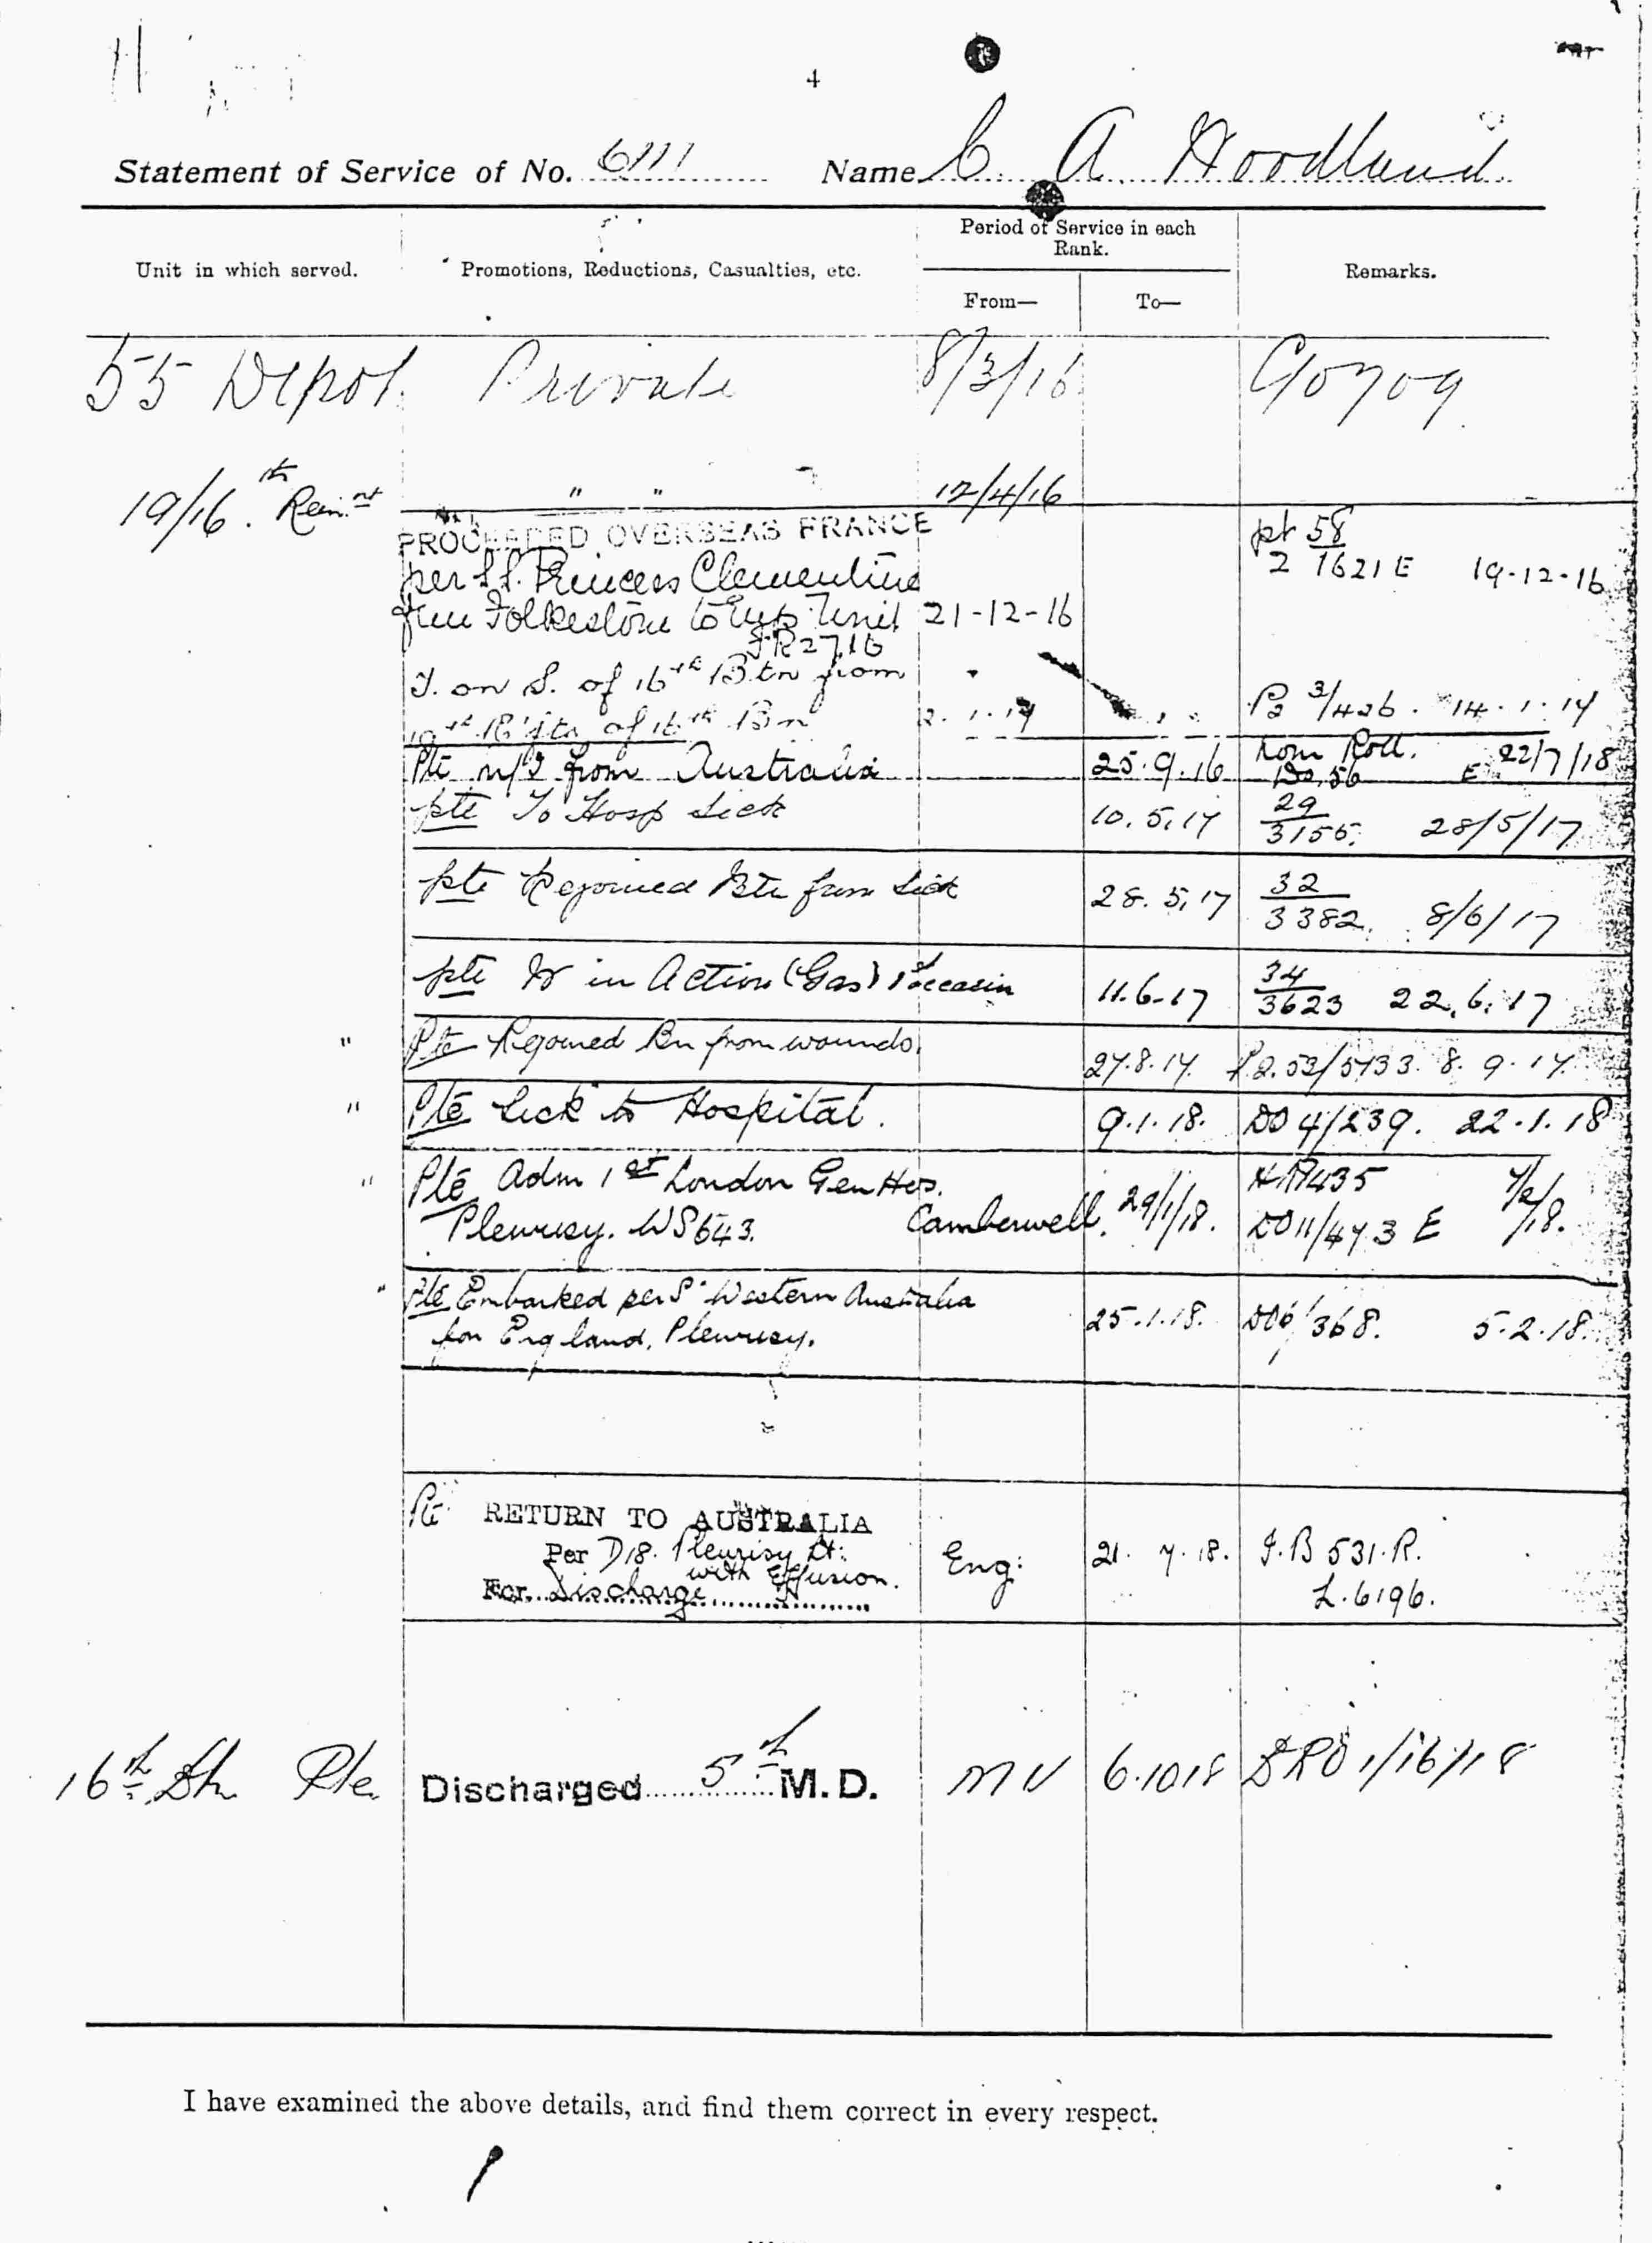 4
Statement of Service of No. 6111 Name C. A. Woodland
Unit in which served.
Promotions, Reductions, Casualties, etc.
Period of Service in each
Rank.
From—
To—
Remarks.
55 Depot Private 8/3/16
19/16th Rein.nt " " 12/4/16
PROCEEDED OVERSEAS FRANCE
per S.S. Princess Clementine
from Folkestone to Unit 21-12-16
pt 58
2 1621 E 19-12-16
T. on S. of 16th Btn from
19th R'fts of 16th Bn 2.1.17 P2 3/426. 14.1.17
Pte from Australia 25.9.16 Nom Roll. E 22/7/18
Pte To Hosp Sick 10.5.17 29/3155. 28/5/17
Pte Rejoined Btn from Sick 28.5.17 32/3382. 8/6/17
Pte W in Action (Gas) 1st occasion 11.6.17 34/3623 22.6.17
" Pte Rejoined Bn from wounds. 27.8.17. P2.53/5733. 8.9.17.
" Pte Sick to Hospital. 9.1.18. DO 4/239. 22.1.18
" Pte Adm 1st London Gen Hos.
Pleurisy. WS 643. Camberwell. 29/1/18.
HR7435
DO 11/473 E 7/2/18.
" Pte Embarked per S. Western Australia
for England, Pleurisy. 25.1.18. DO6/368. 5.2.18.
Pte RETURN TO AUSTRALIA
Per D18. Pleurisy Lt:
with Effusion.
For Discharge
Eng: 21.7.18. I.B 531.R.
L.6196.
16th Bn Pte. Discharged 5th M.D. MU 6.10.18 DRO 1/16/18
I have examined the above details, and find them correct in every respect.